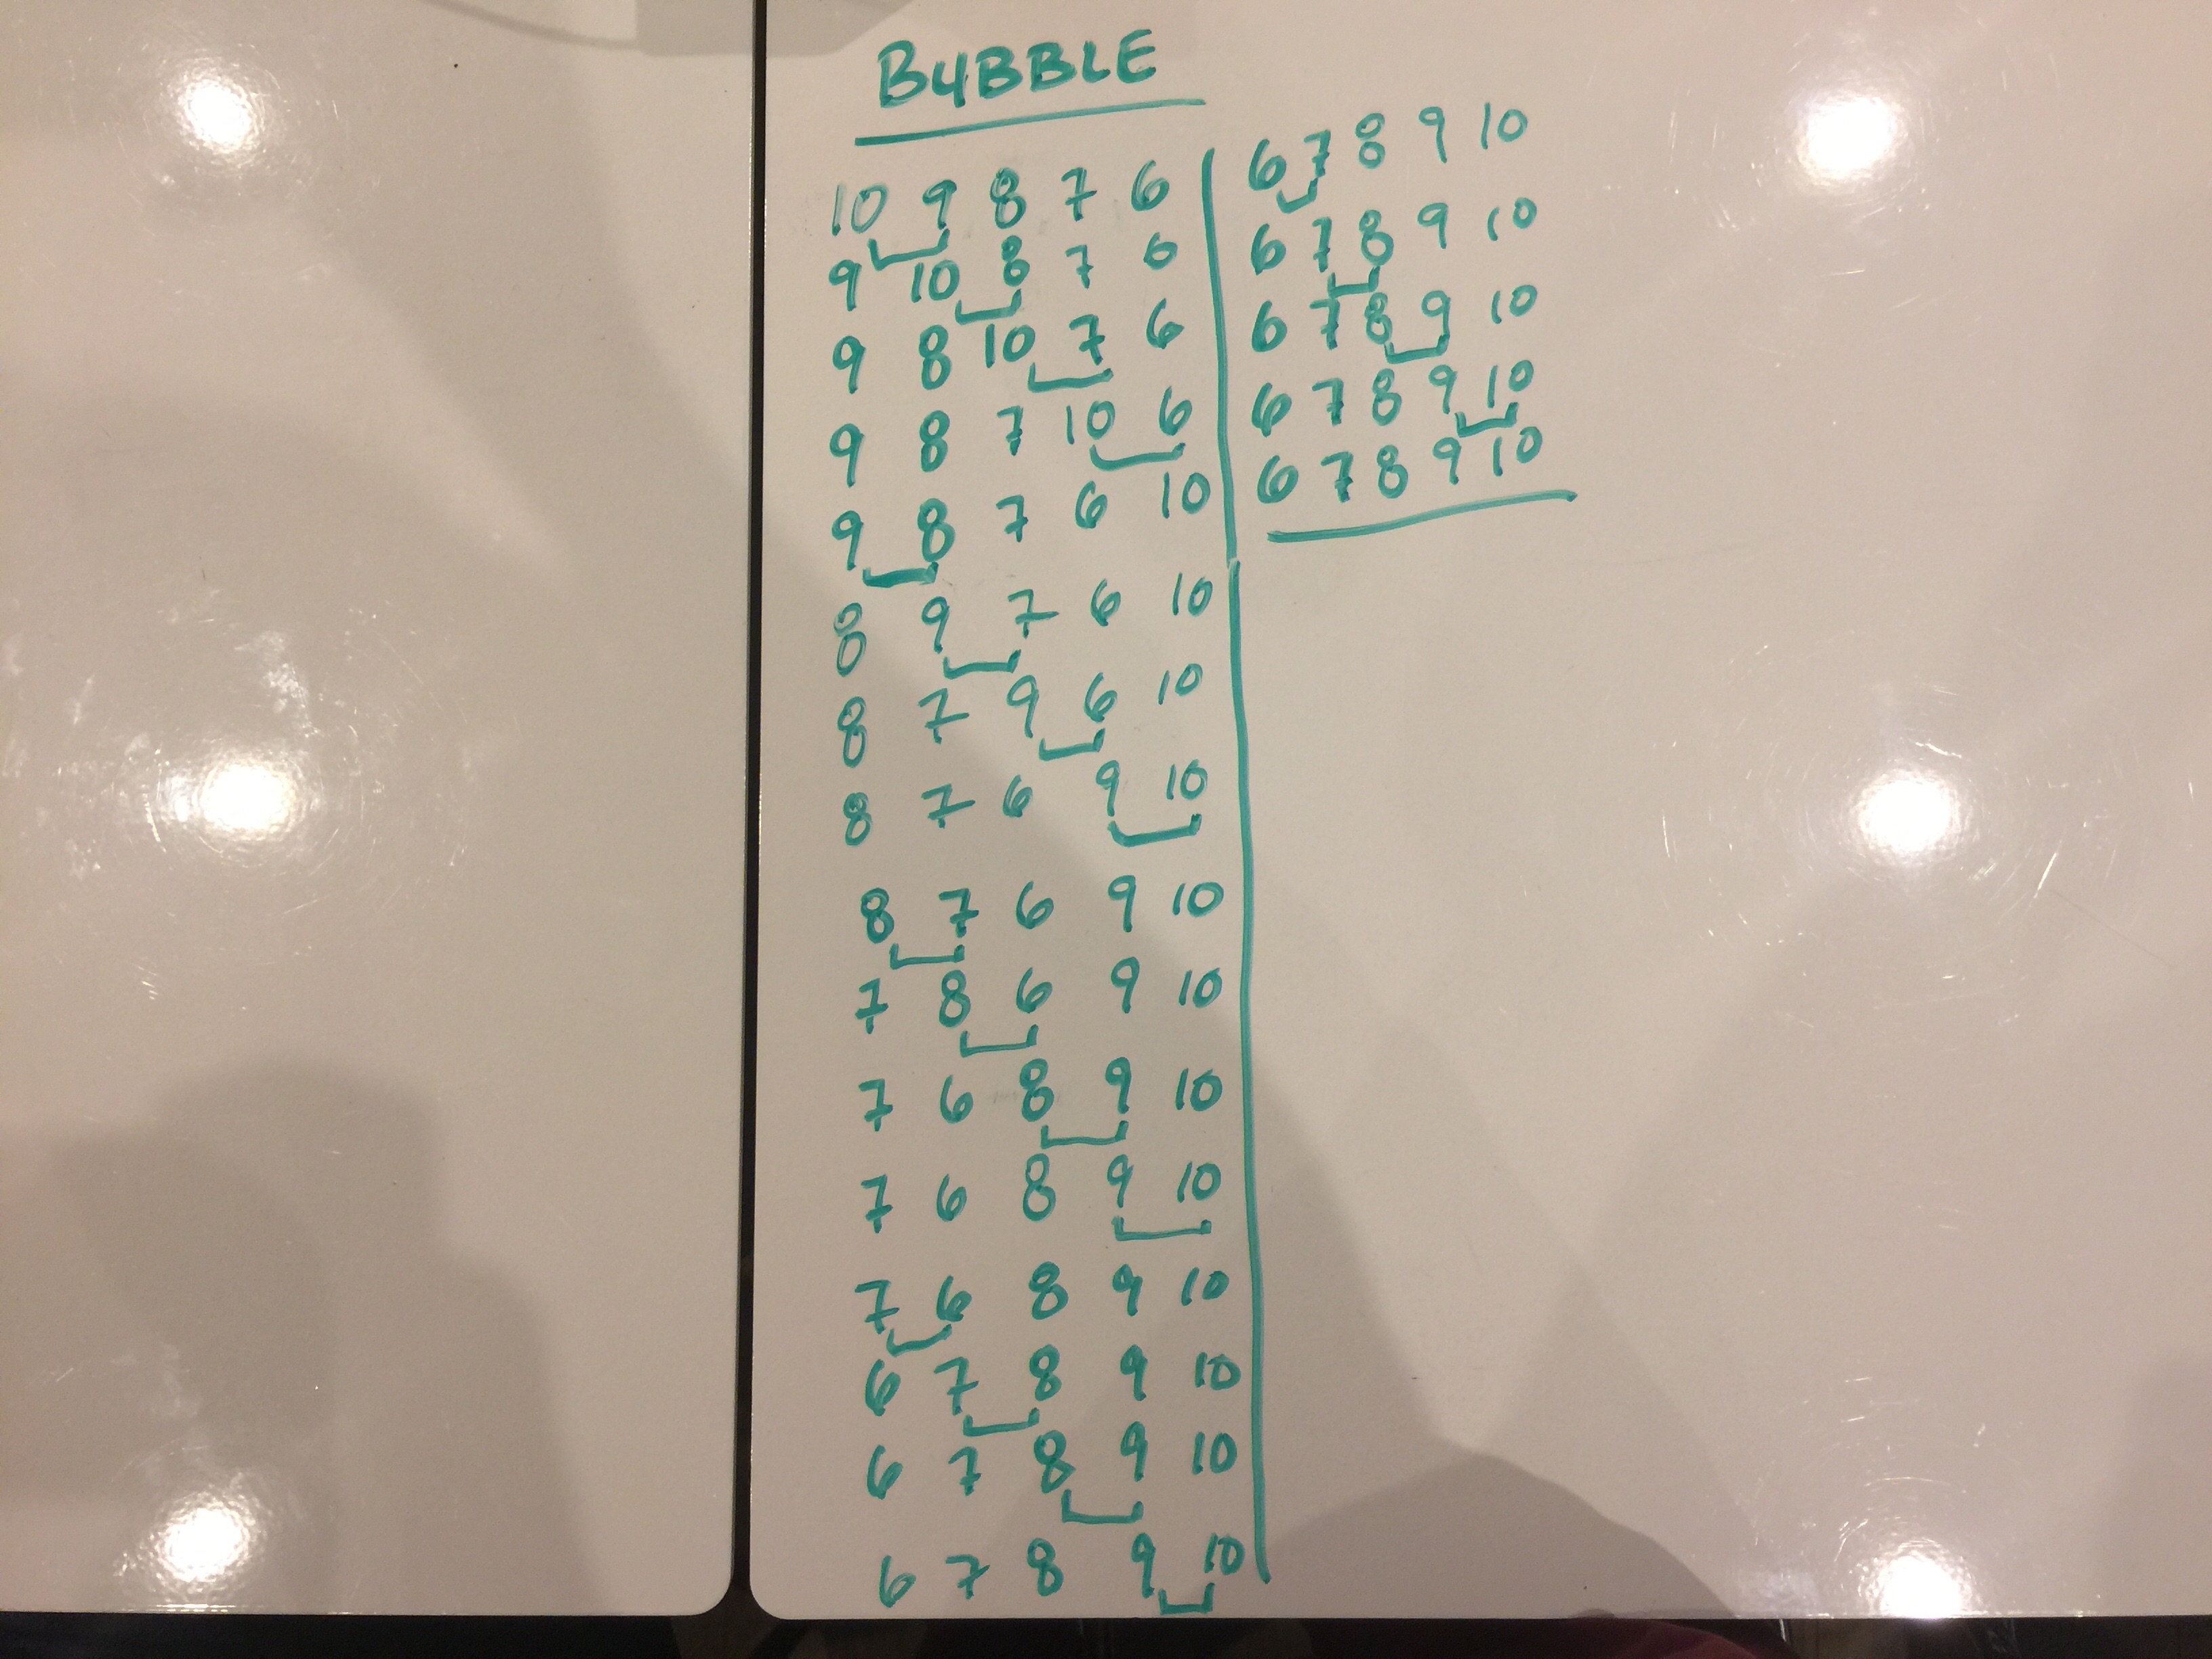 BUBBLE
10 9 8 7 6
9 10 8 7 6
9 8 10 7 6
9 8 7 10 6
9 8 7 6 10
8 9 7 6 10
8 7 9 6 10
8 7 6 9 10
8 7 6 9 10
7 8 6 9 10
7 6 8 9 10
7 6 8 9 10
7 6 8 9 10
6 7 8 9 10
6 7 8 9 10
6 7 8 9 10
6 7 8 9 10
6 7 8 9 10
6 7 8 9 10
6 7 8 9 10
6 7 8 9 10